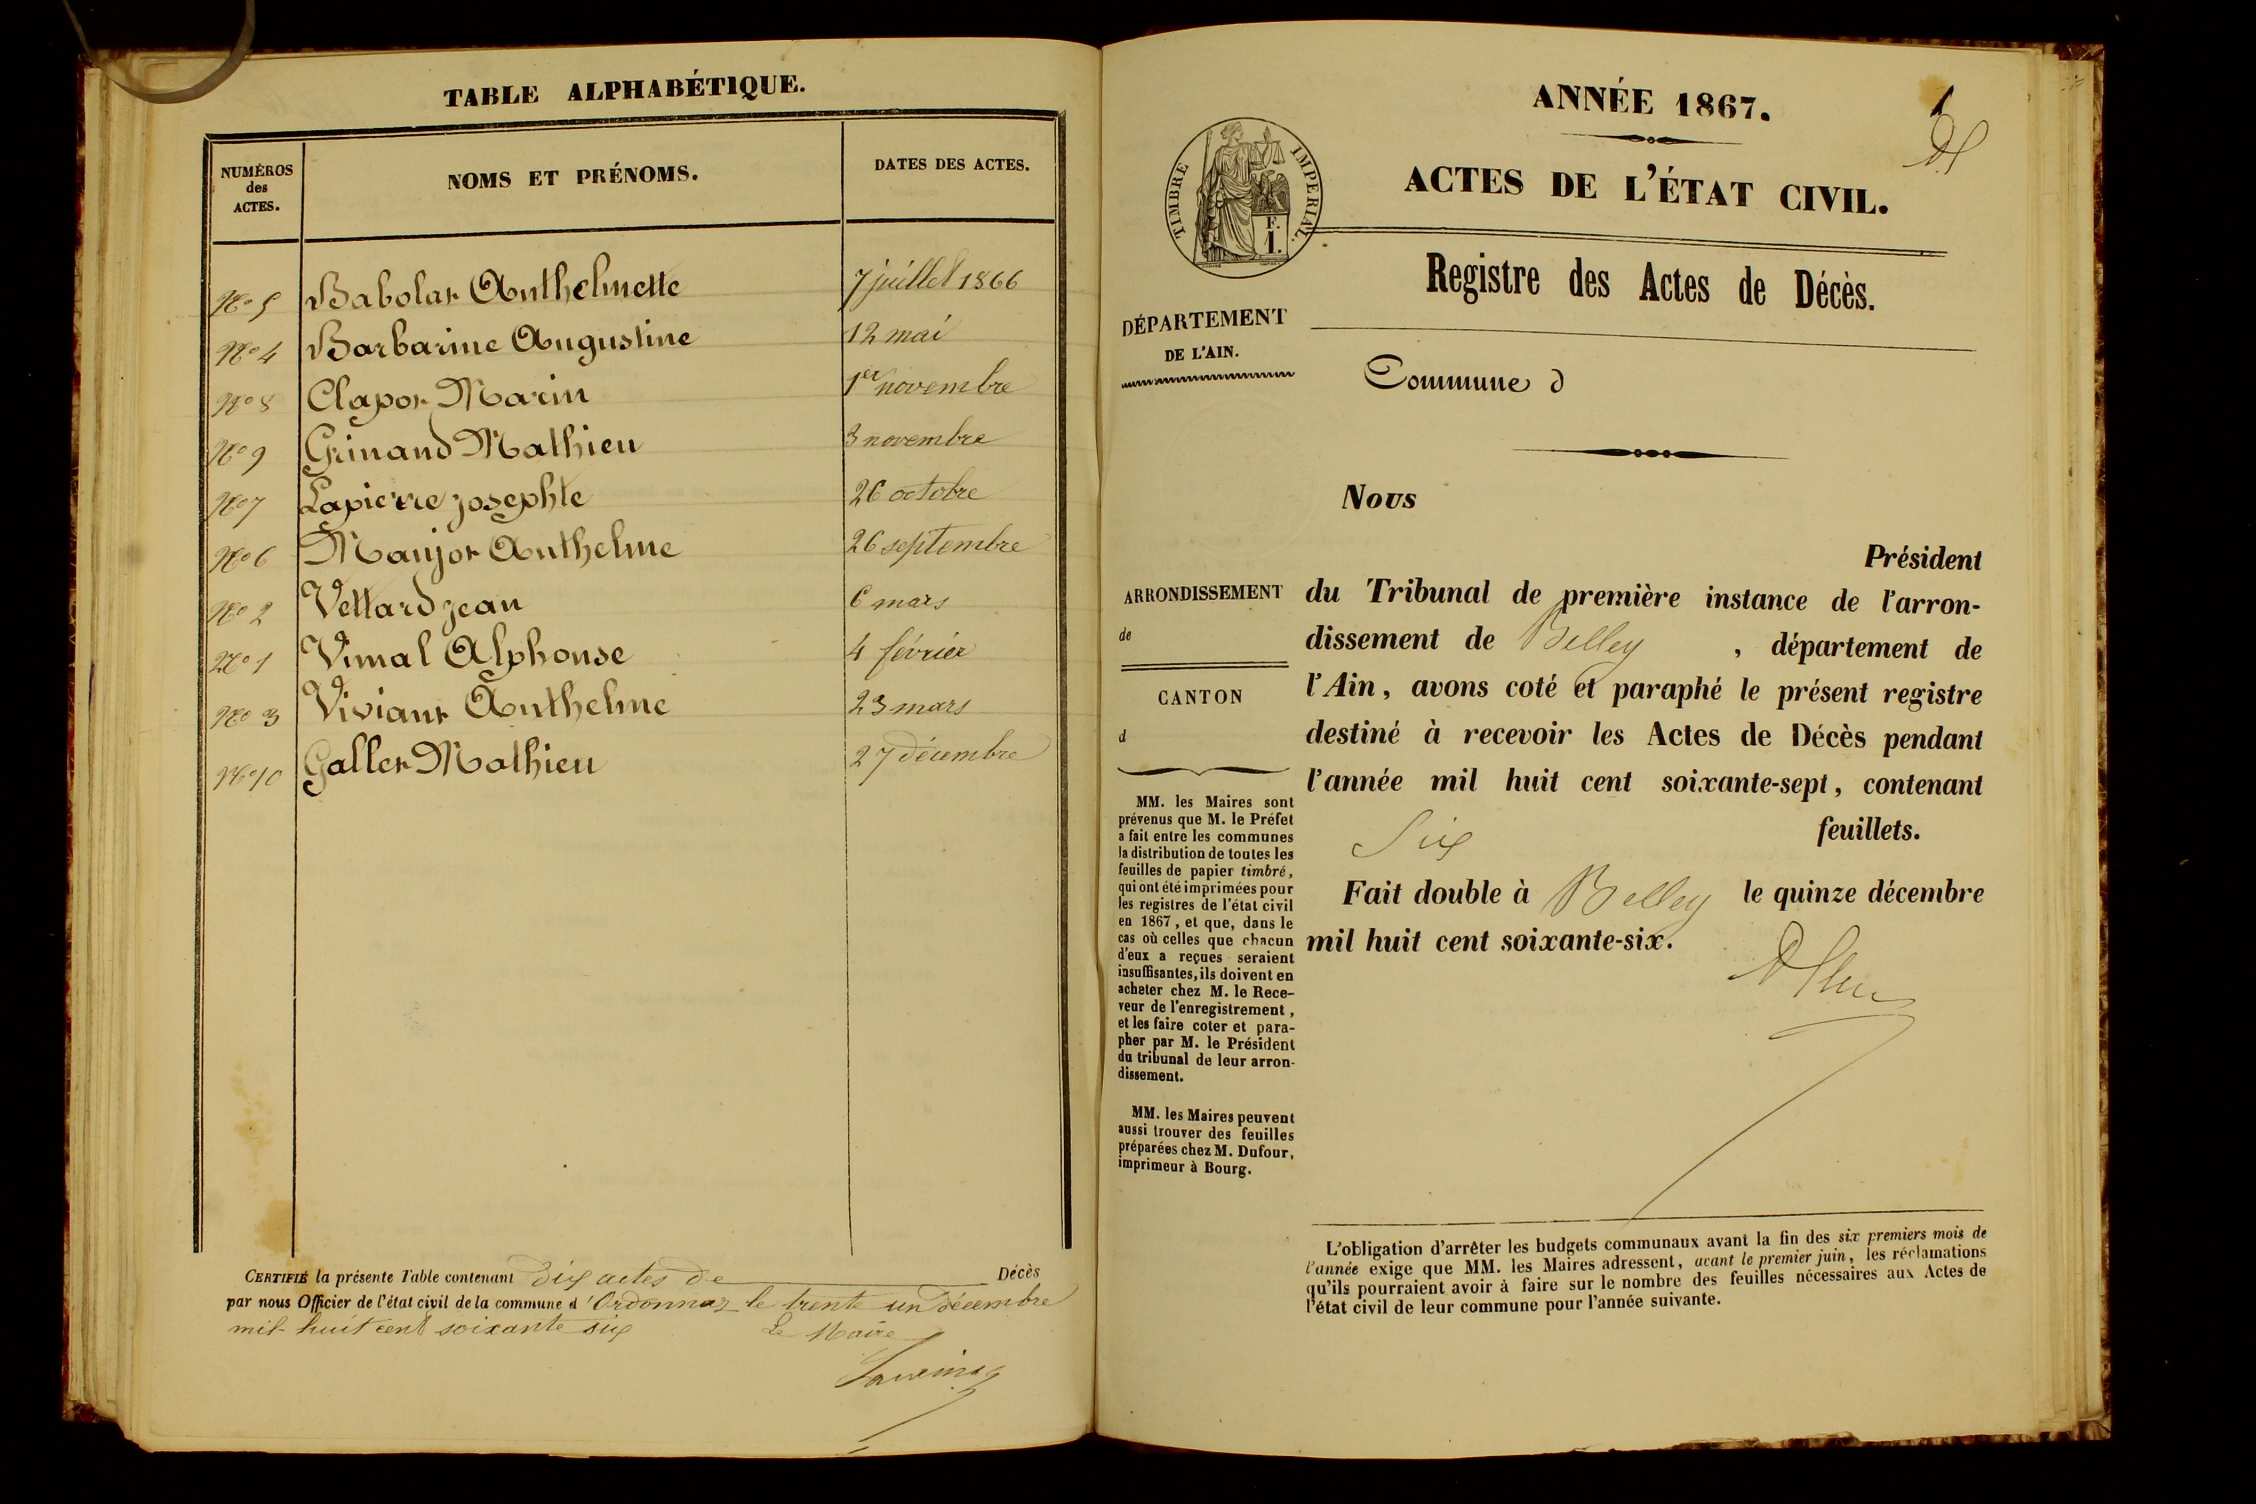 TABLE ALPHABÉTIQUE.
NUMÉROS
des
ACTES.
NOMS ET PRÉNOMS.
DATES DES ACTES.
No 5 Babolat Anthelmette 7 juillet 1866
No 4 Barbarine Augustine 12 mai
No 8 Clapot Marin 1er novembre
No 9 Grinand Mathieu 3 novembre
No 7 Lapierre Josephte 26 octobre
No 6 Maujot Anthelme 26 septembre
No 2 Vettard Jean 6 mars
No 1 Vimal Alphonse 4 février
No 3 Viviant Anthelme 23 mars
No 10 Gallet Mathieu 27 décembre
CERTIFIÉ la présente Table contenant dix actes de Décès
par nous Officier de l'état civil de la commune d'Ordonnaz le trente un décembre
mil huit cent soixante six Le Maire
ANNÉE 1867.
1
ACTES DE L'ÉTAT CIVIL.
TIMBRE IMPERIAL.
F.
1.
Registre des Actes de Décès.
DÉPARTEMENT
DE L'AIN.
Commune d
Nous
Président
ARRONDISSEMENT
de
CANTON
d
du Tribunal de première instance de l'arron-
dissement de Belley , département de
l'Ain, avons coté et paraphé le présent registre
destiné à recevoir les Actes de Décès pendant
l'année mil huit cent soixante-sept, contenant
Six feuillets.
Fait double à Belley le quinze décembre
mil huit cent soixante-six.
MM. les Maires sont
prévenus que M. le Préfet
a fait entre les communes
la distribution de toutes les
feuilles de papier timbré,
qui ont été imprimées pour
les registres de l'état civil
en 1867, et que, dans le
cas où celles que chacun
d'eux a reçues seraient
insuffisantes, ils doivent en
acheter chez M. le Rece-
veur de l'enregistrement,
et les faire coter et para-
pher par M. le Président
du tribunal de leur arron-
dissement.
MM. les Maires peuvent
aussi trouver des feuilles
préparées chez M. Dufour,
imprimeur à Bourg.
L'obligation d'arrêter les budgets communaux avant la fin des six premiers mois de
l'année exige que MM. les Maires adressent, avant le premier juin, les réclamations
qu'ils pourraient avoir à faire sur le nombre des feuilles nécessaires aux Actes de
l'état civil de leur commune pour l'année suivante.